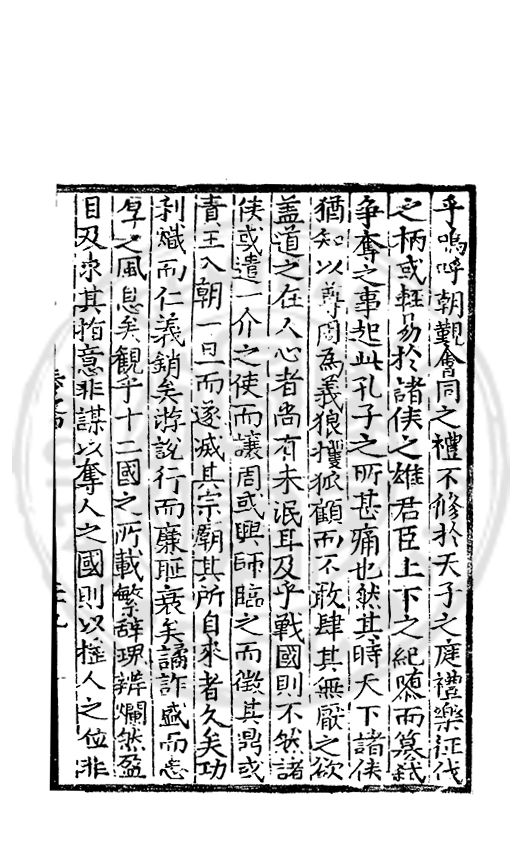 乎嗚呼朝覲會同之禮不修於天子之庭禮樂征伐
之柄或輕易於諸侯之雄君臣上下之紀隳而簒弒
爭奪之事起此孔子之所甚痛也然其時天下諸侯
猶知以尊周為義狼攫狐顧而不敢肆其無厭之欲
盖道之在人心者尚有未泯耳及乎戰國則不然諸
侯或遣一介之使而讓周或興師臨之而徵其鼎或
責王入朝一旦而遂滅其宗廟其所自來者久矣功
利熾而仁義銷矣游說行而廉耻衰矣譎詐盛而忠
厚之風息矣觀乎十二國之所載繁辭瓌辨爛然盈
目及求其指意非謀以奪人之國則以極人之位非